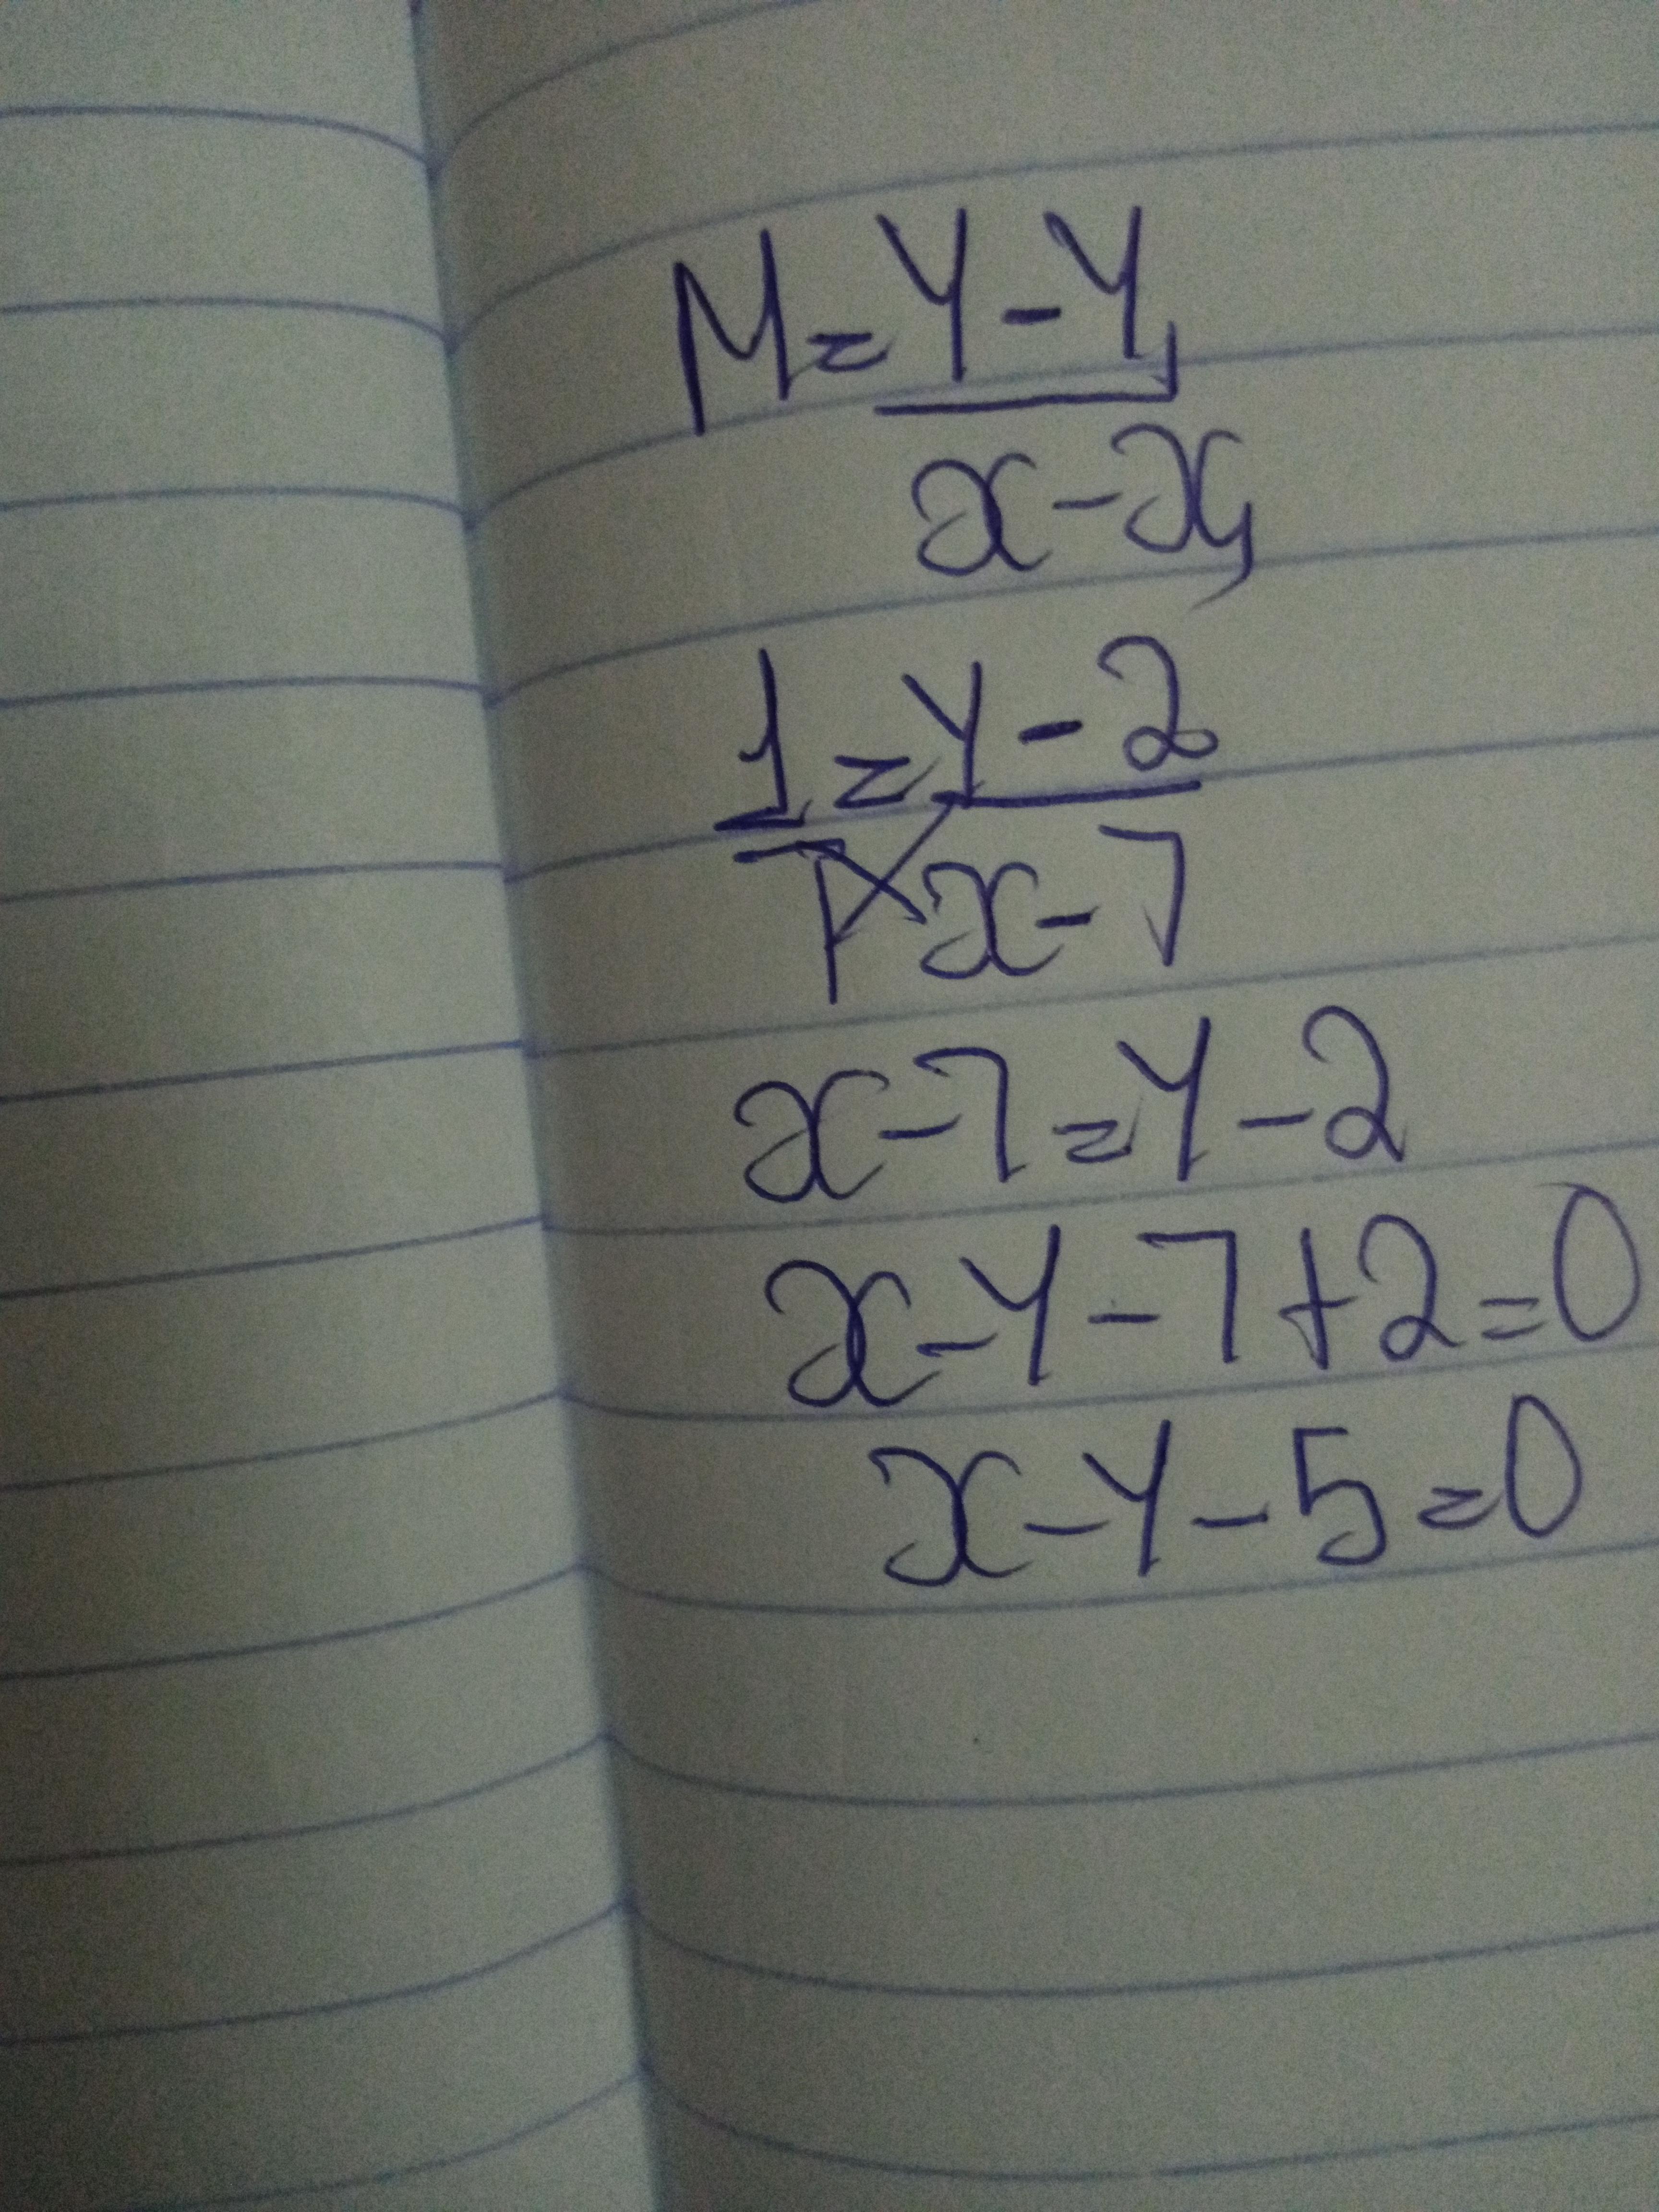 M = y - y₁
x - x₁
1 = y - 2
1 x - 7
x - 7 = y - 2
x - y - 7 + 2 = 0
x - y - 5 = 0